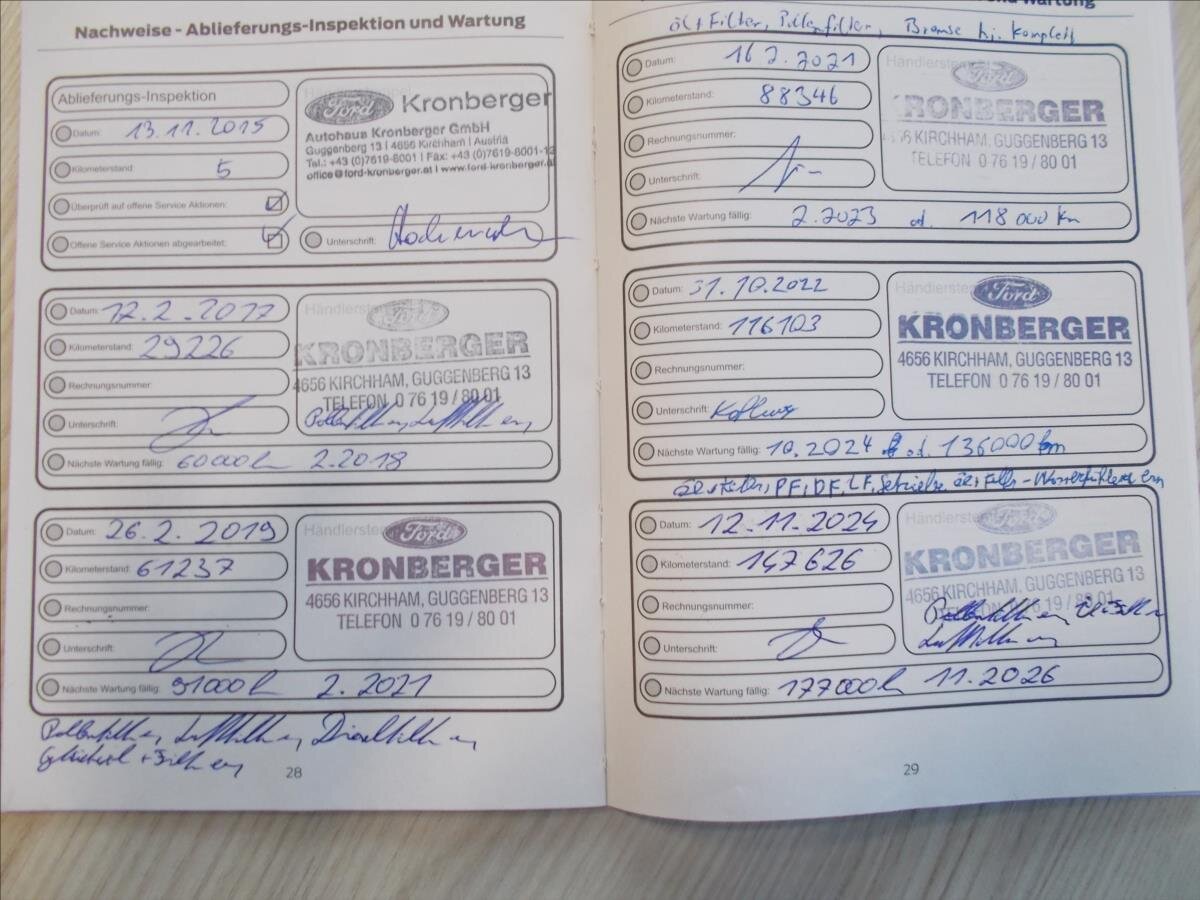 Nachweise - Ablieferungs-Inspektion und Wartung
Ablieferungs-Inspektion
Datum: 13.11.2015
Kilometerstand: 5
Überprüft auf offene Service Aktionen:
Offene Service Aktionen abgearbeitet:
Ford Kronberger
Autohaus Kronberger GmbH
Guggenberg 13 | 4656 Kirchham | Austria
Tel.: +43 (0)7619-8001 | Fax: +43 (0)7619-8001-12
office@ford-kronberger.at | www.ford-kronberger.at
Unterschrift:
Datum: 12.2.2017
Kilometerstand: 29226
Rechnungsnummer:
Unterschrift:
Händlerstempel
Ford
KRONBERGER
4656 KIRCHHAM, GUGGENBERG 13
TELEFON 0 76 19 / 80 01
Nächste Wartung fällig: 60000 2.2018
Datum: 26.2.2019
Kilometerstand: 61237
Rechnungsnummer:
Unterschrift:
Händlerstempel
Ford
KRONBERGER
4656 KIRCHHAM, GUGGENBERG 13
TELEFON 0 76 19 / 80 01
Nächste Wartung fällig: 91000 2.2021
28
Wartung
Öl + Filter, Pollenfilter, Bremse hi. komplett
Datum: 16.2.2021
Kilometerstand: 88346
Rechnungsnummer:
Unterschrift:
Händlerstempel
Ford
KRONBERGER
4656 KIRCHHAM, GUGGENBERG 13
TELEFON 0 76 19 / 80 01
Nächste Wartung fällig: 2.2023 od. 118000 km
Datum: 31.10.2022
Kilometerstand: 116103
Rechnungsnummer:
Unterschrift:
Händlerstempel
Ford
KRONBERGER
4656 KIRCHHAM, GUGGENBERG 13
TELEFON 0 76 19 / 80 01
Nächste Wartung fällig: 10.2024 od. 136000 km
PF, DF, LF,
Datum: 12.11.2024
Kilometerstand: 147626
Rechnungsnummer:
Unterschrift:
Händlerstempel
Ford
KRONBERGER
4656 KIRCHHAM, GUGGENBERG 13
Nächste Wartung fällig: 177000 11.2026
29